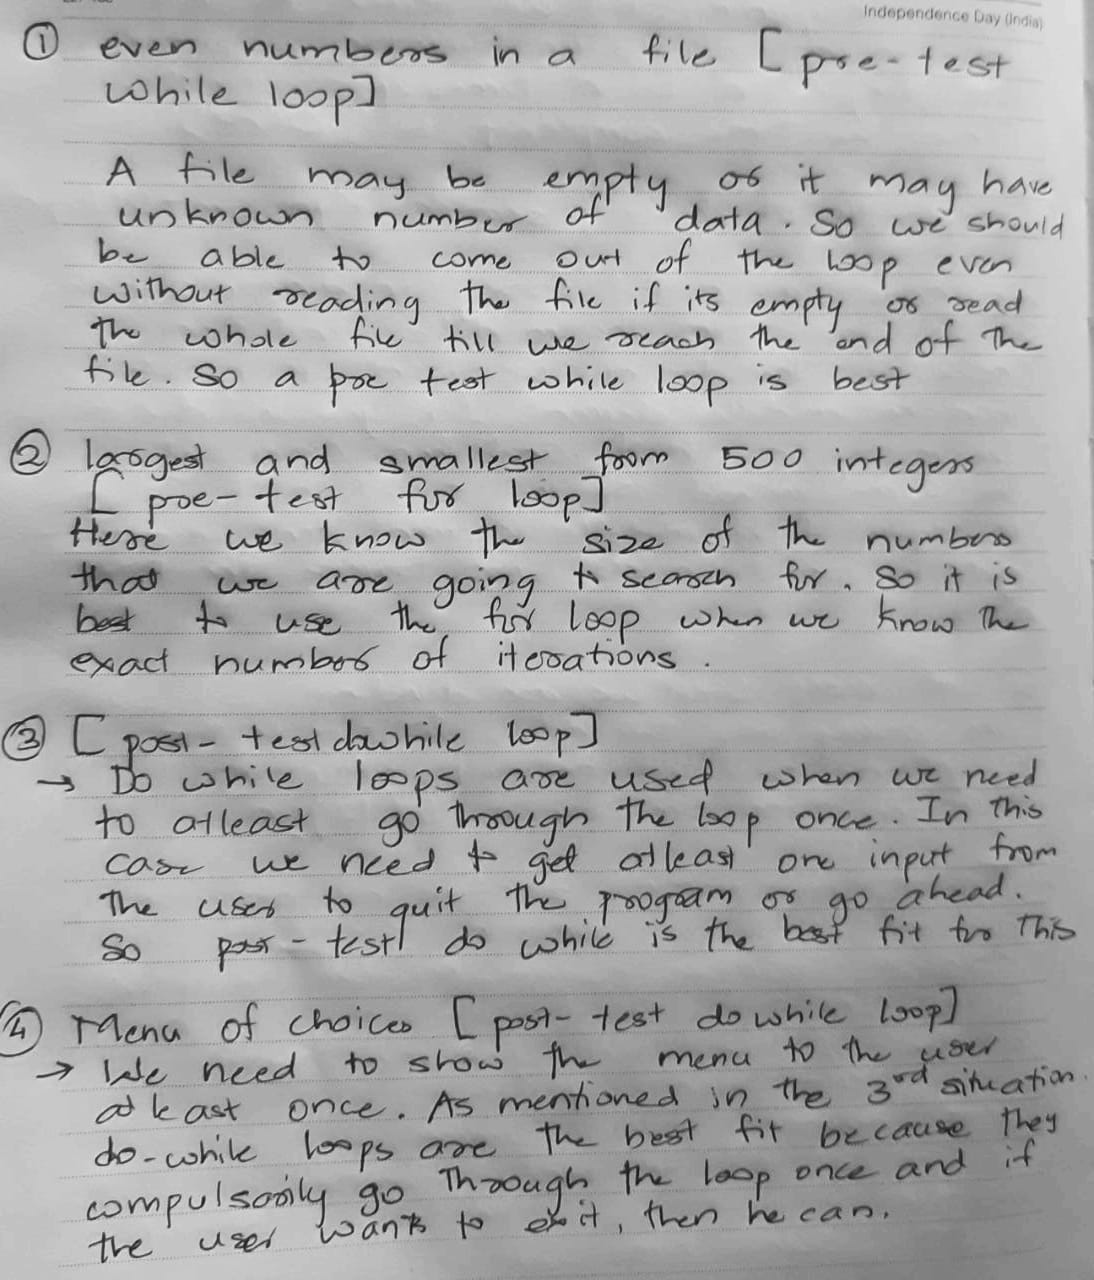 Independence Day (India)
① even numbers in a file [pre-test
while loop]
A file may be empty or it may have
unknown number of data. So we should
be able to come out of the loop even
without reading the file if its empty or read
the whole file till we reach the end of the
file. So a pre test while loop is best
② largest and smallest from 500 integers
[pre-test for loop]
Here we know the size of the numbers
that we are going to search for. So it is
best to use the for loop when we know the
exact number of iterations.
③ [post-test dowhile loop]
→ Do while loops are used when we need
to atleast go through the loop once. In this
case we need to get atleast one input from
the user to quit the program or go ahead.
So post-test do while is the best fit for this
④ Menu of choices [post-test do while loop]
→ We need to show the menu to the user
atleast once. As mentioned in the 3rd situation.
do-while loops are the best fit because they
compulsorily go through the loop once and if
the user wants to exit, then he can.